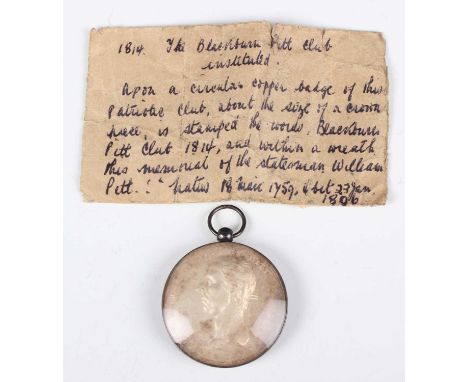 1814. The Blackburn Pitt Club
instituted.
Upon a circular copper badge of this
Patriotic Club, about the size of a crown
piece, is stamped the words, Blackburn
Pitt Club 1814, and within a wreath
this memorial of the statesman William
Pitt. : " Natus 18 Maii 1759, Obet 23 Jan.
1806